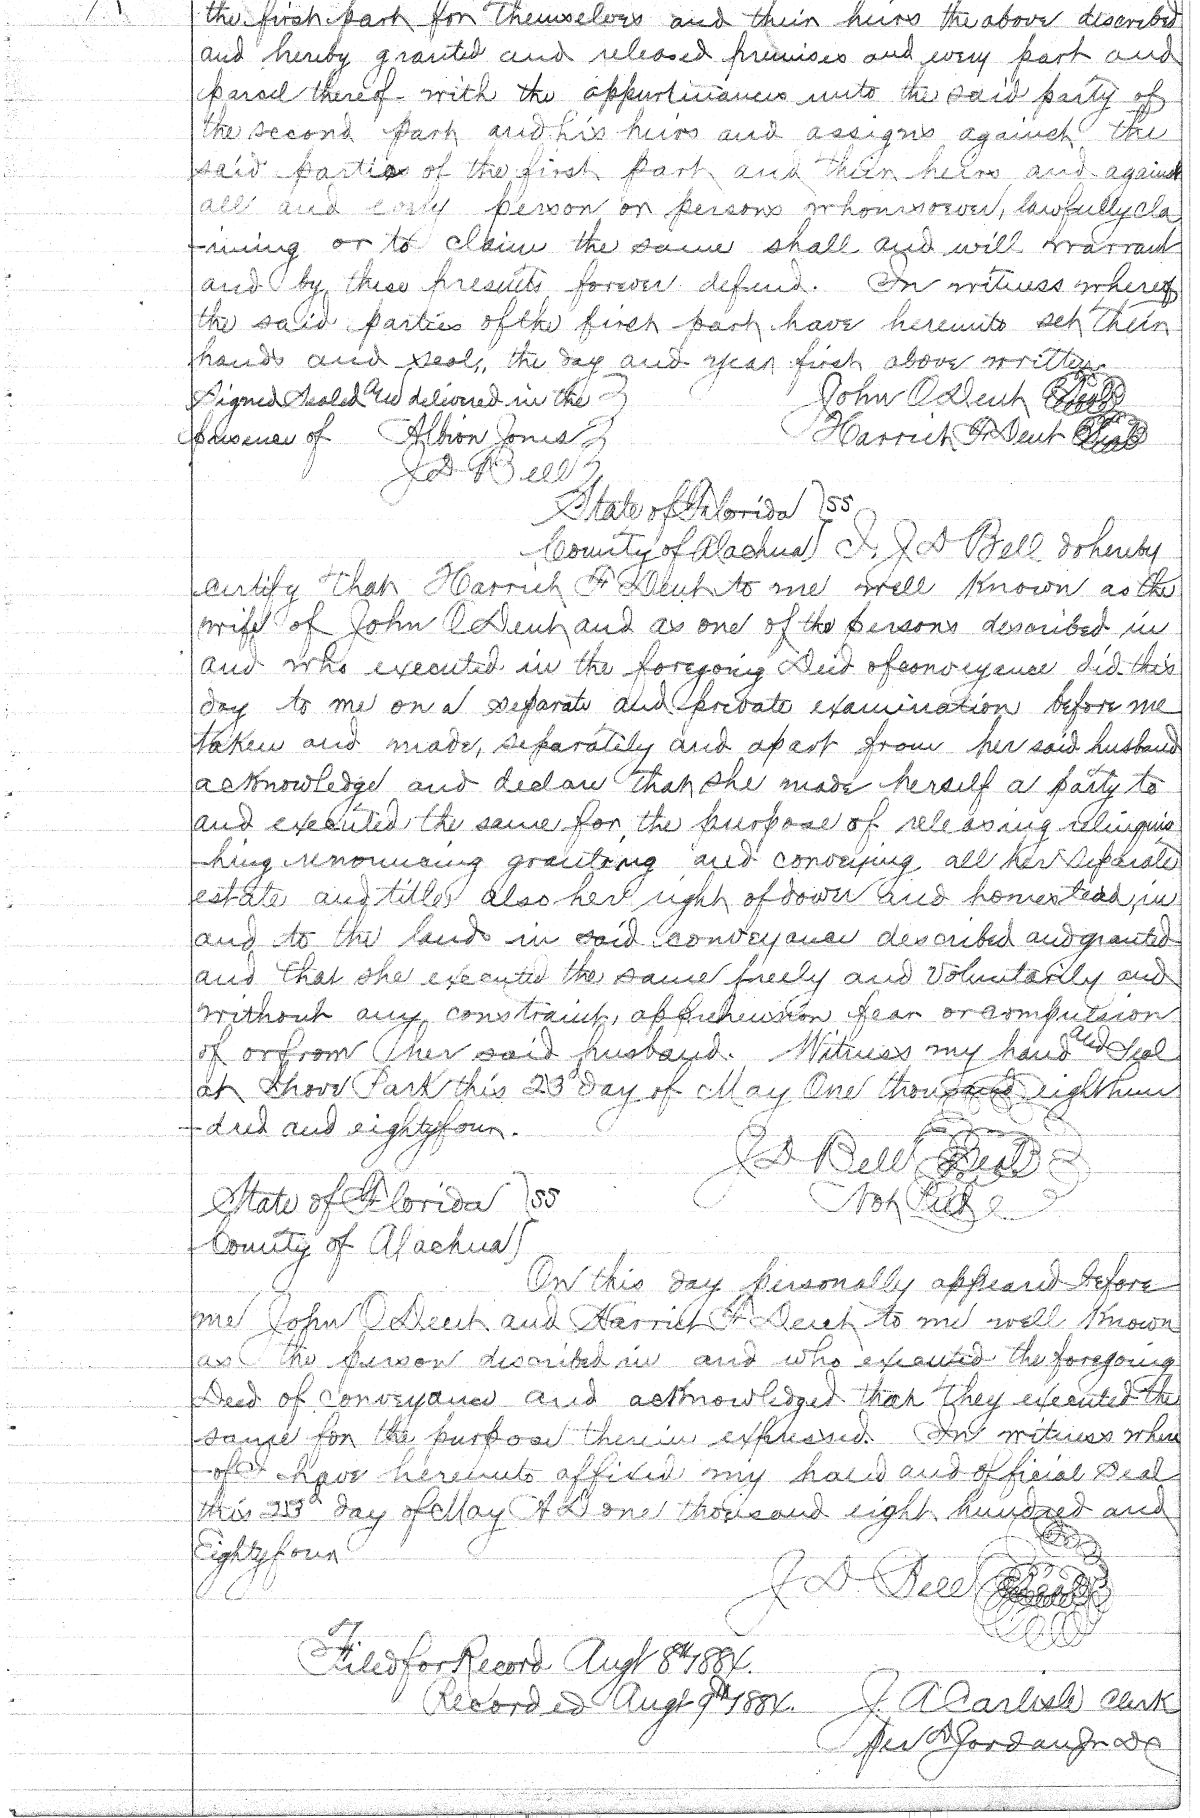 the first part for Themselves and their heirs the above discribed
and hereby granted and released premises and every part and
parsel thereof with the appurtinances unto the said party of
the second part and his heirs and assigns against the
said parties of the first part and their heirs and against
all and every person or persons whomsoever, lawfully cla
-iming or to claim the same shall and will warrant
and by these presents forever defend. In witness whereof
the said parties of the first part have hereunto set Their
hands and seals, the day and year first above written
Signed Sealed and delivered in the
John O Dent Seal
presence of Albion Jones
Harriet F Dent Seal
J D Bell
State of Florida ) SS
County of Alachua ) I, J D Bell do hereby
certify That Harriet F Dent to me well Known as the
wife of John O Dent and as one of the persons described in
and who executed in the foregoing Deed of conveyance did this
day to me on a separate and private examination before me
taken and made, separately and apart from her said husband
acknowledge and declare that she made herself a party to
and executed the same for the purpose of releasing relinquis
-hing renouncing granting and conveying all her separate
estate and title also her right of dower and homestead, in
and to the lands in said conveyance described and granted
and that she executed the same freely and voluntarily and
without any constraint, apprehension fear or compulsion
of or from her said husband. Witness my hand and Seal
at Shove Park this 23d day of May One thousand eight hun
-dred and eightyfour.
J D Bell Seal
Not Pub
State of Florida ) SS
County of Alachua )
On this day personally appeared before
me John O Dent and Harriet F Dent to me well Known
as the person discribed in and who executed the foregoing
Deed of conveyance and acknowledged that They executed the
same for the purpose therein expressed. In witness where
-of I have hereunto affixed my hand and official Seal
this 23d day of May A D one thousand eight hundred and
Eightyfour
J. D. Bell Seal
Filed for Record Augt 8th 1884.
Recorded Augt 9th 1884.
J. A Carlisle Clerk
Per D Jordan Jr D C